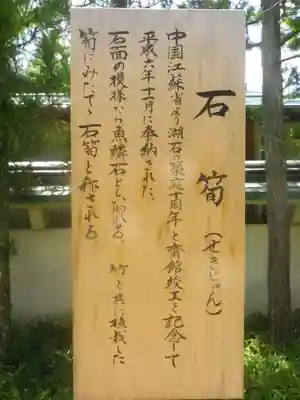 石筍（せきじゅん）
中国江蘇省より湖石の築苑十周年と齋館竣工を記念して
平成六年十一月に奉納された。
石面の模様から魚鱗石ともいわれる。竹と共に植栽した
筍にみたて石筍と称される